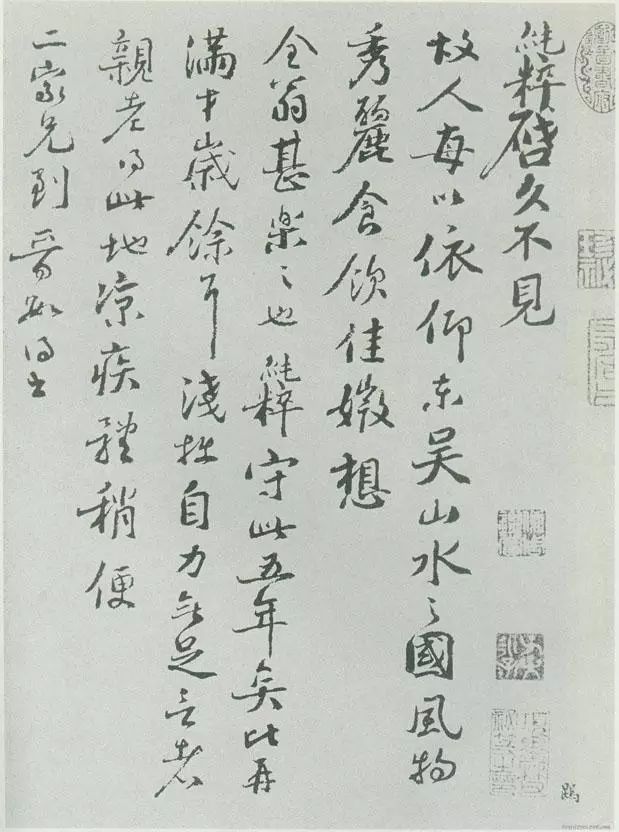 純粹啓久不見
故人每以依仰東吴山水之國風物
秀麗食飲佳媺想
全翁甚樂之也純粹守此五年矣比再
滿才歲餘耳淺拙自力無足言者
親老得此地凉疾體稍便
二家兄到晋得書